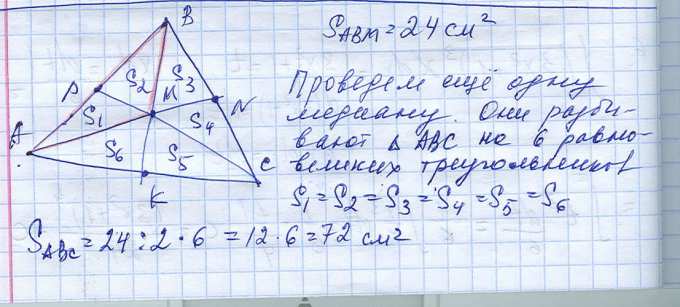 B
S_ABM = 24 см²
P
S₂
S₃
M
N
S₁
S₄
A
S₆
S₅
C
K
Проведем ещё одну
медиану. Они разби-
вают Δ ABC на 6 равно-
великих треугольников
S₁ = S₂ = S₃ = S₄ = S₅ = S₆
S_ABC = 24 : 2 · 6 = 12 · 6 = 72 см²